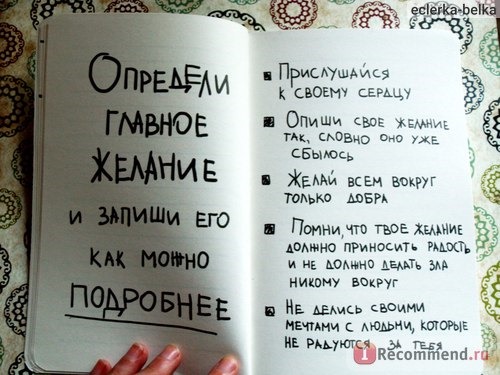 eclerka-belka
ОПРЕДЕЛИ
ГЛАВНОЕ
ЖЕЛАНИЕ
И ЗАПИШИ ЕГО
КАК МОЖНО
ПОДРОБНЕЕ
ПРИСЛУШАЙСЯ
К СВОЕМУ СЕРДЦУ
ОПИШИ СВОЕ ЖЕЛАНИЕ
ТАК, СЛОВНО ОНО УЖЕ
СБЫЛОСЬ
ЖЕЛАЙ ВСЕМ ВОКРУГ
ТОЛЬКО ДОБРА
ПОМНИ, ЧТО ТВОЕ ЖЕЛАНИЕ
ДОЛЖНО ПРИНОСИТЬ РАДОСТЬ
И НЕ ДОЛЖНО ДЕЛАТЬ ЗЛА
НИКОМУ ВОКРУГ
НЕ ДЕЛИСЬ СВОИМИ
МЕЧТАМИ С ЛЮДЬМИ, КОТОРЫЕ
НЕ РАДУЮТСЯ ЗА ТЕБЯ
iRecommend.ru